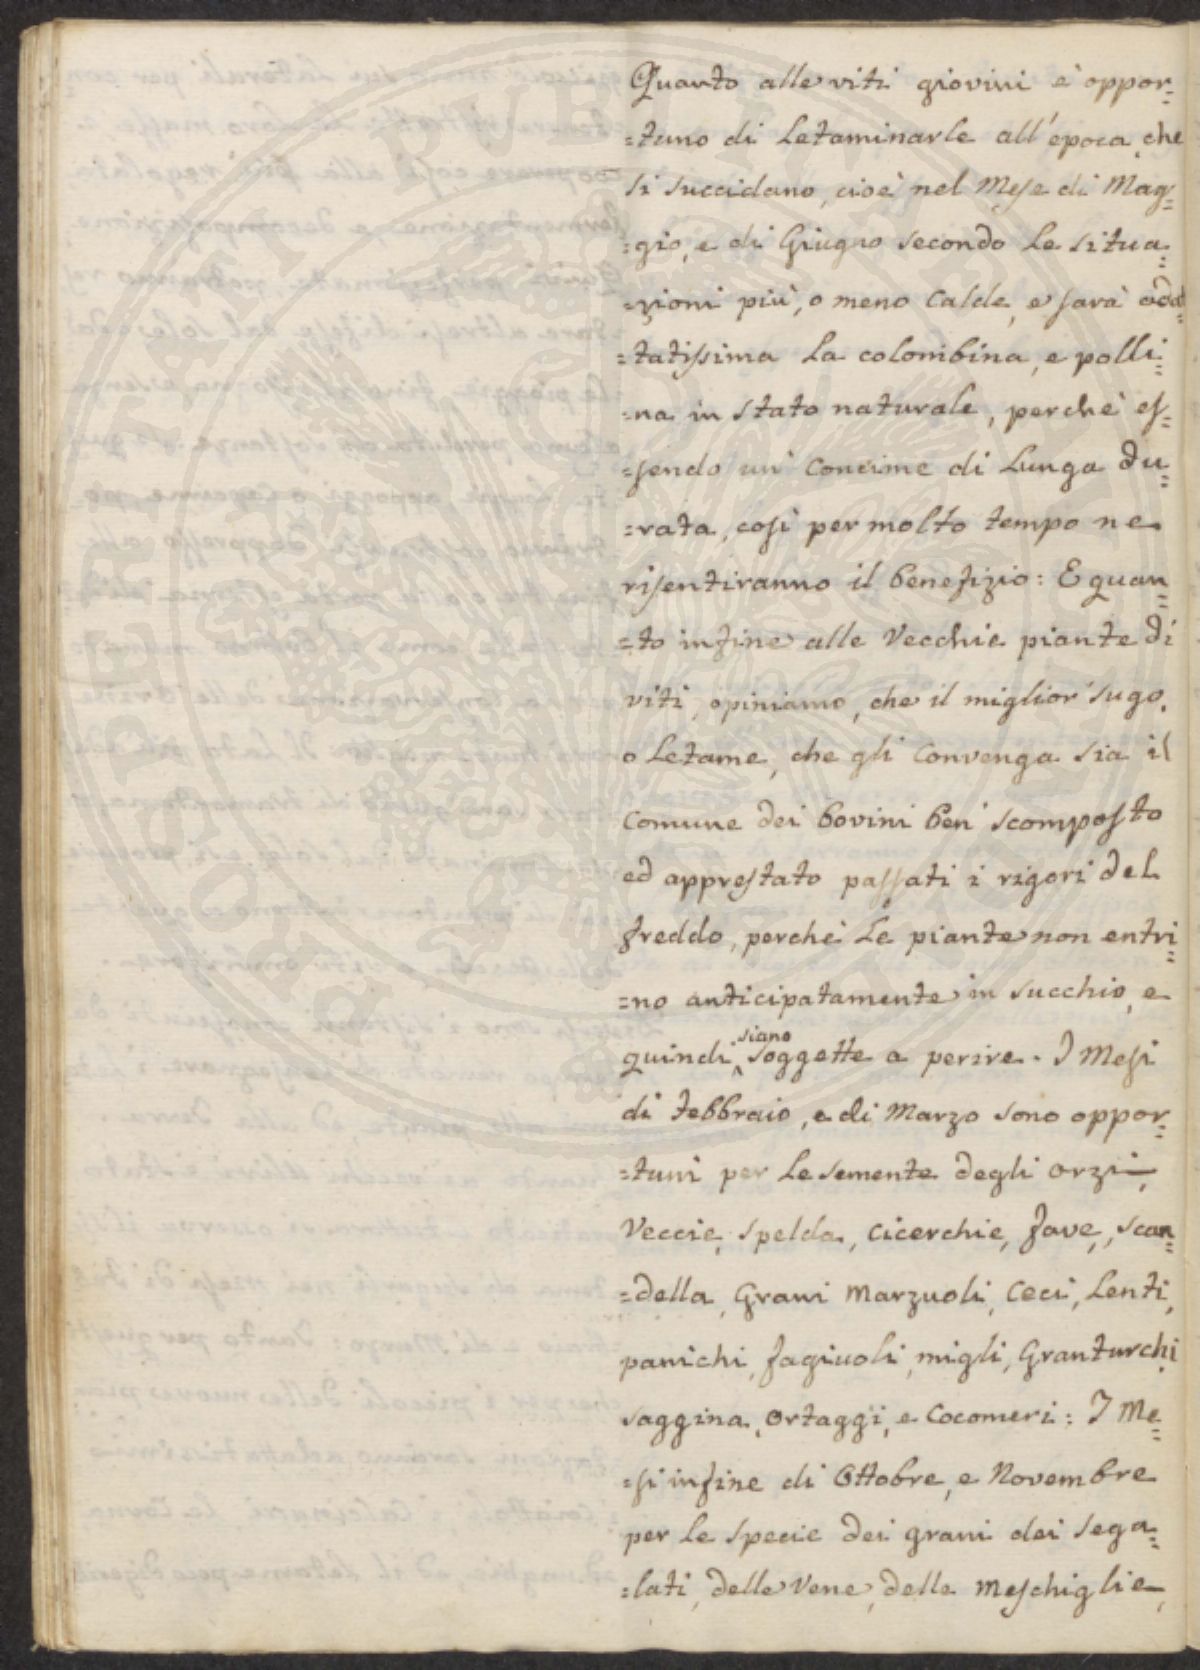 Quanto alle viti giovini è oppor=
=tuno di Letaminarle all'epoca, che
si succidano, cioè nel Mese di Mag=
=gio, e di Giugno secondo Le situa=
=zioni più, o meno Calde, e sarà adat=
=tatissima La colombina, e polli=
=na in stato naturale, perchè es=
=sendo un' Concime di Lunga du=
=rata, così per molto tempo ne
risentiranno il benefizio: E quan=
=to infine alle Vecchie piante di
viti, opiniamo, che il miglior' sugo,
o Letame, che gli Convenga sia il
Comune dei bovini ben' scomposto
ed apprestato passati i rigori del
freddo, perchè Le piante non entri=
=no anticipatamente in succhio, e
quindi siano soggette a perire. I Mesi
di Febbraio, e di Marzo sono oppor=
=tuni per Le semente degli orzi,
Veccie, Spelda, Cicerchie, fave, scan=
=della, Grani Marzuoli, Ceci, Lenti,
panichi, fagiuoli, migli, Granturchi,
saggina, ortaggi, e Cocomeri: I Me=
=si infine di Ottobre, e Novembre
per Le Specie dei grani dei sega=
=lati, delle Vene, delle Meschiglie,